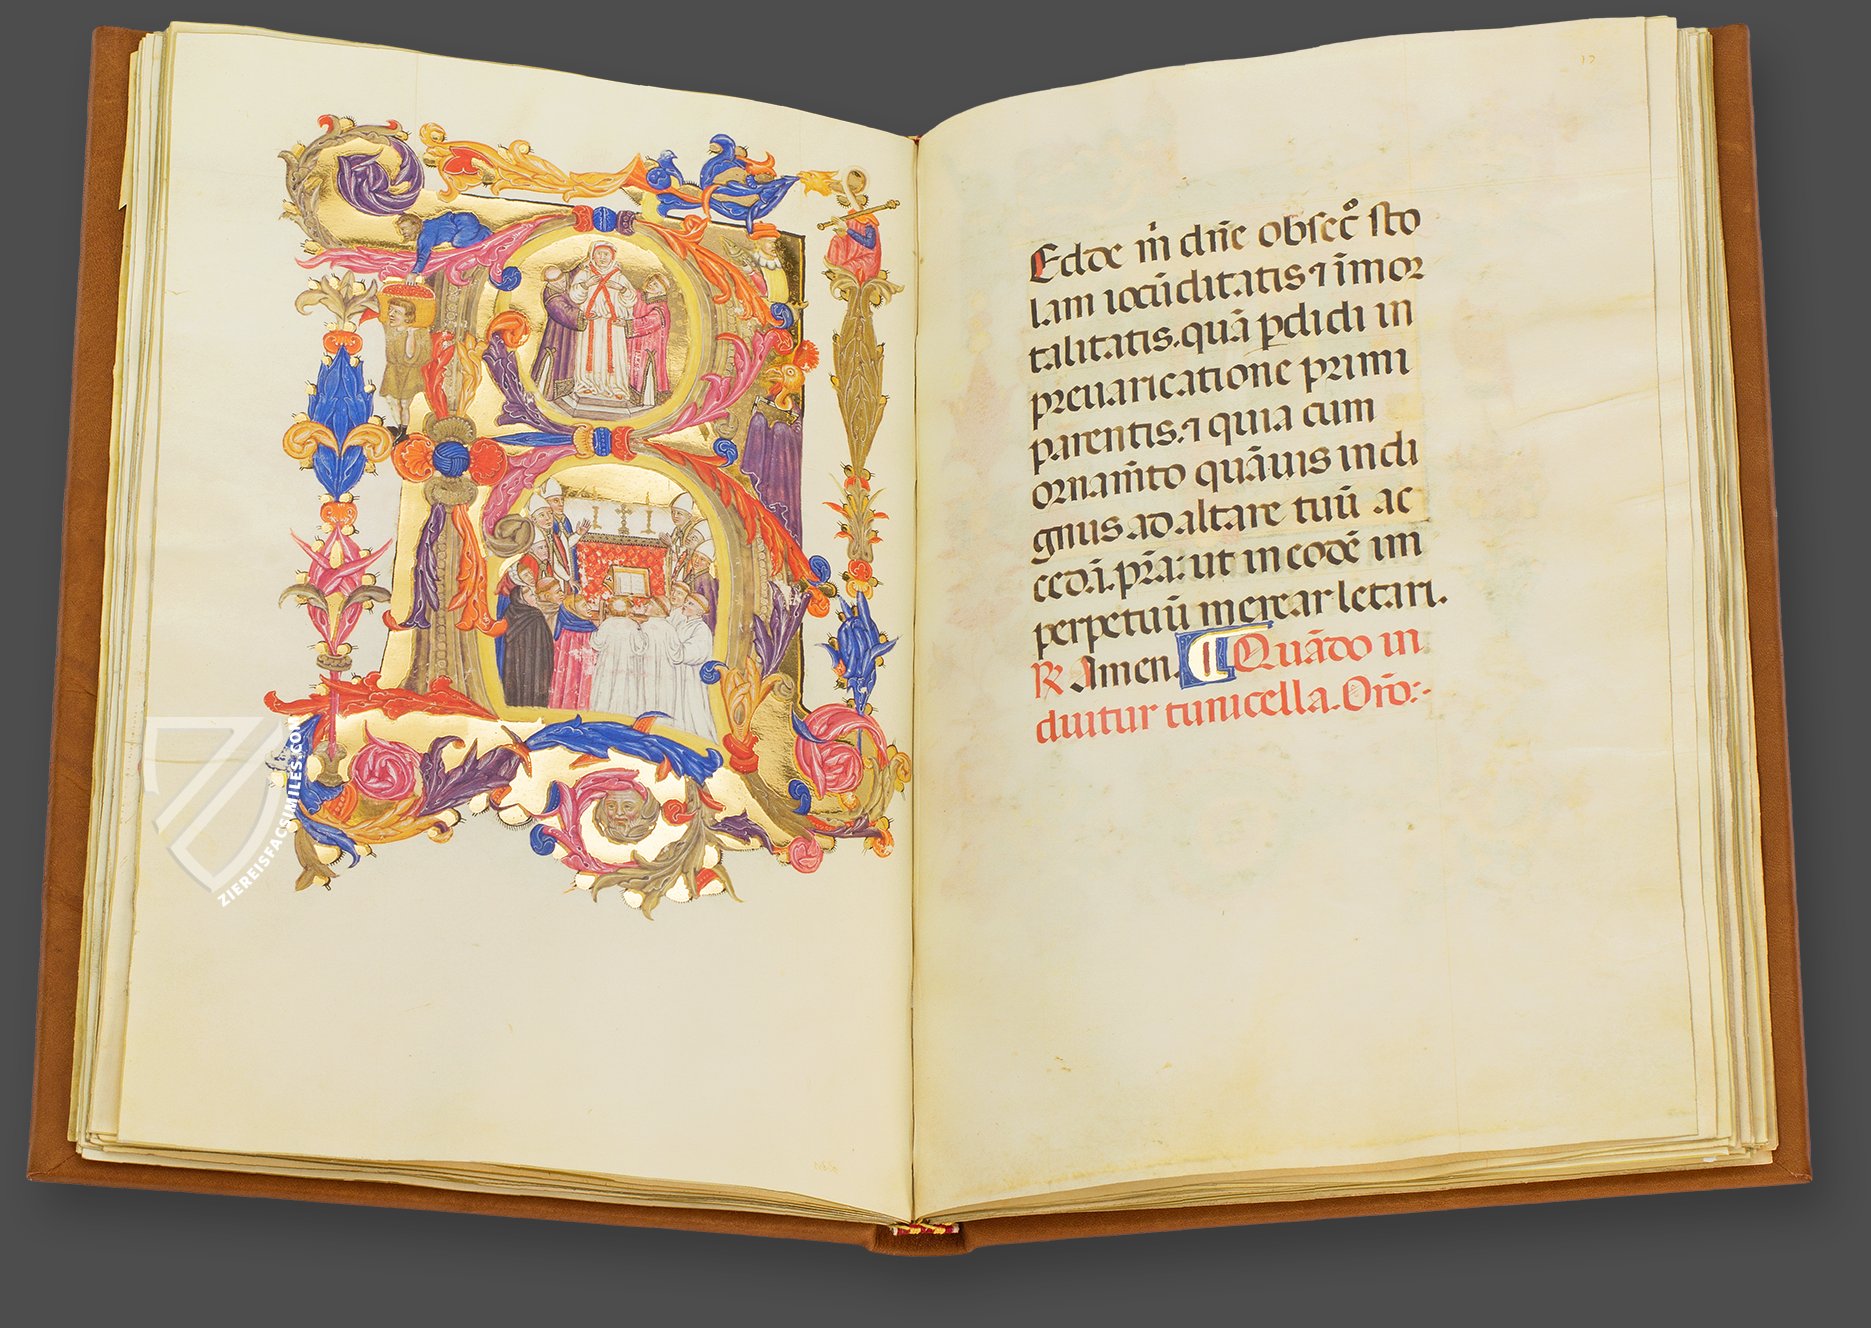 ZIEREISFACSIMILES.COM
R
Edde m̄ dn̄e obsec̊ sto
lam iocūditatis ⁊ īmor
talitatis. quā ꝑdidi in
preuaricatione primi
parentis. ⁊ quia cum
ornam̄to quāuis indi
gnus ad altare tuū ac
cedā. pr̄a: ut in eodē im
perpetuū merear letari.
R Amen. ¶ Quādo in
duitur tunicella. Orō:-